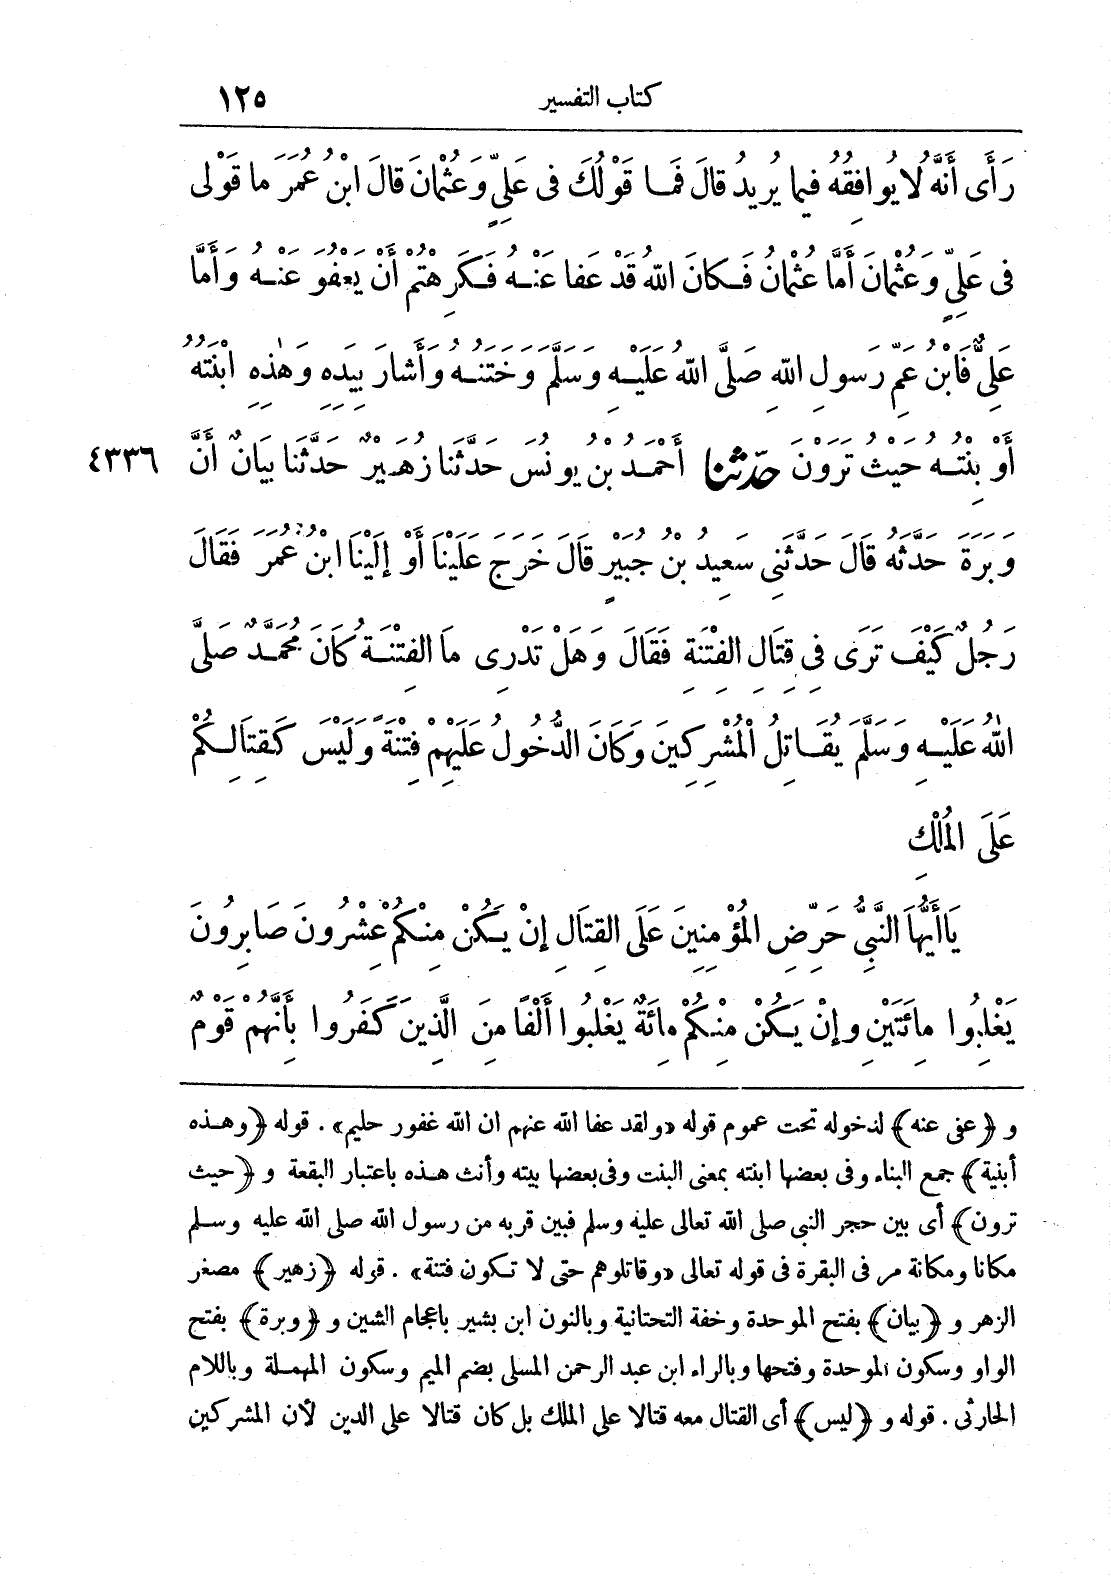 كتاب التفسير ١٢٥
رَأَى أَنَّهُ لَا يُوَافِقُهُ فِيمَا يُرِيدُ قَالَ فَمَا قَوْلُكَ فِى عَلِيٍّ وَعُثْمَانَ قَالَ ابْنُ عُمَرَ مَا قَوْلِى
فِى عَلِيٍّ وَعُثْمَانَ أَمَّا عُثْمَانُ فَكَانَ اللهُ قَدْ عَفَا عَنْهُ فَكَرِهْتُمْ أَنْ يَعْفُوَ عَنْهُ وَأَمَّا
عَلِيٌّ فَابْنُ عَمِّ رَسُولِ اللهِ صَلَّى اللهُ عَلَيْهِ وَسَلَّمَ وَخَتَنُهُ وَأَشَارَ بِيَدِهِ وَهٰذِهِ ابْنَتُهُ
أَوْ بِنْتُهُ حَيْثُ تَرَوْنَ حدّثنا أَحْمَدُ بْنُ يُونُسَ حَدَّثَنَا زُهَيْرٌ حَدَّثَنَا بَيَانٌ أَنَّ ٤٣٣٦
وَبَرَةَ حَدَّثَهُ قَالَ حَدَّثَنِى سَعِيدُ بْنُ جُبَيْرٍ قَالَ خَرَجَ عَلَيْنَا أَوْ إِلَيْنَا ابْنُ عُمَرَ فَقَالَ
رَجُلٌ كَيْفَ تَرَى فِى قِتَالِ الفِتْنَةِ فَقَالَ وَهَلْ تَدْرِى مَا الفِتْنَةُ كَانَ مُحَمَّدٌ صَلَّى
اللهُ عَلَيْهِ وَسَلَّمَ يُقَاتِلُ الْمُشْرِكِينَ وَكَانَ الدُّخُولُ عَلَيْهِمْ فِتْنَةً وَلَيْسَ كَقِتَالِكُمْ
عَلَى المُلْكِ
يَاأَيُّهَا النَّبِيُّ حَرِّضِ المُؤْمِنِينَ عَلَى القِتَالِ إِنْ يَكُنْ مِنْكُمْ عِشْرُونَ صَابِرُونَ
يَغْلِبُوا مِائَتَيْنِ وَإِنْ يَكُنْ مِنْكُمْ مِائَةٌ يَغْلِبُوا أَلْفًا مِنَ الَّذِينَ كَفَرُوا بِأَنَّهُمْ قَوْمٌ
و ﴿عفى عنه﴾ لدخوله تحت عموم قوله «ولقد عفا الله عنهم ان الله غفور حليم» . قوله ﴿وهذه
أبنية﴾ جمع البناء وفى بعضها ابنته بمعنى البنت وفى بعضها بيته وأنث هذه باعتبار البقعة و ﴿حيث
ترون﴾ أى بين حجر النبى صلى الله تعالى عليه وسلم فبين قربه من رسول الله صلى الله عليه وسلم
مكانا ومكانة مر فى البقرة فى قوله تعالى «وقاتلوهم حتى لا تكون فتنة» . قوله ﴿زهير﴾ مصغر
الزهر و ﴿بيان﴾ بفتح الموحدة وخفة التحتانية وبالنون ابن بشير باعجام الشين و ﴿وبرة﴾ بفتح
الواو وسكون الموحدة وفتحها وبالراء ابن عبد الرحمن المسلى بضم الميم وسكون المهملة وباللام
الحارثى . قوله و ﴿ليس﴾ أى القتال معه قتالا على الملك بل كان قتالا على الدين لأن المشركين